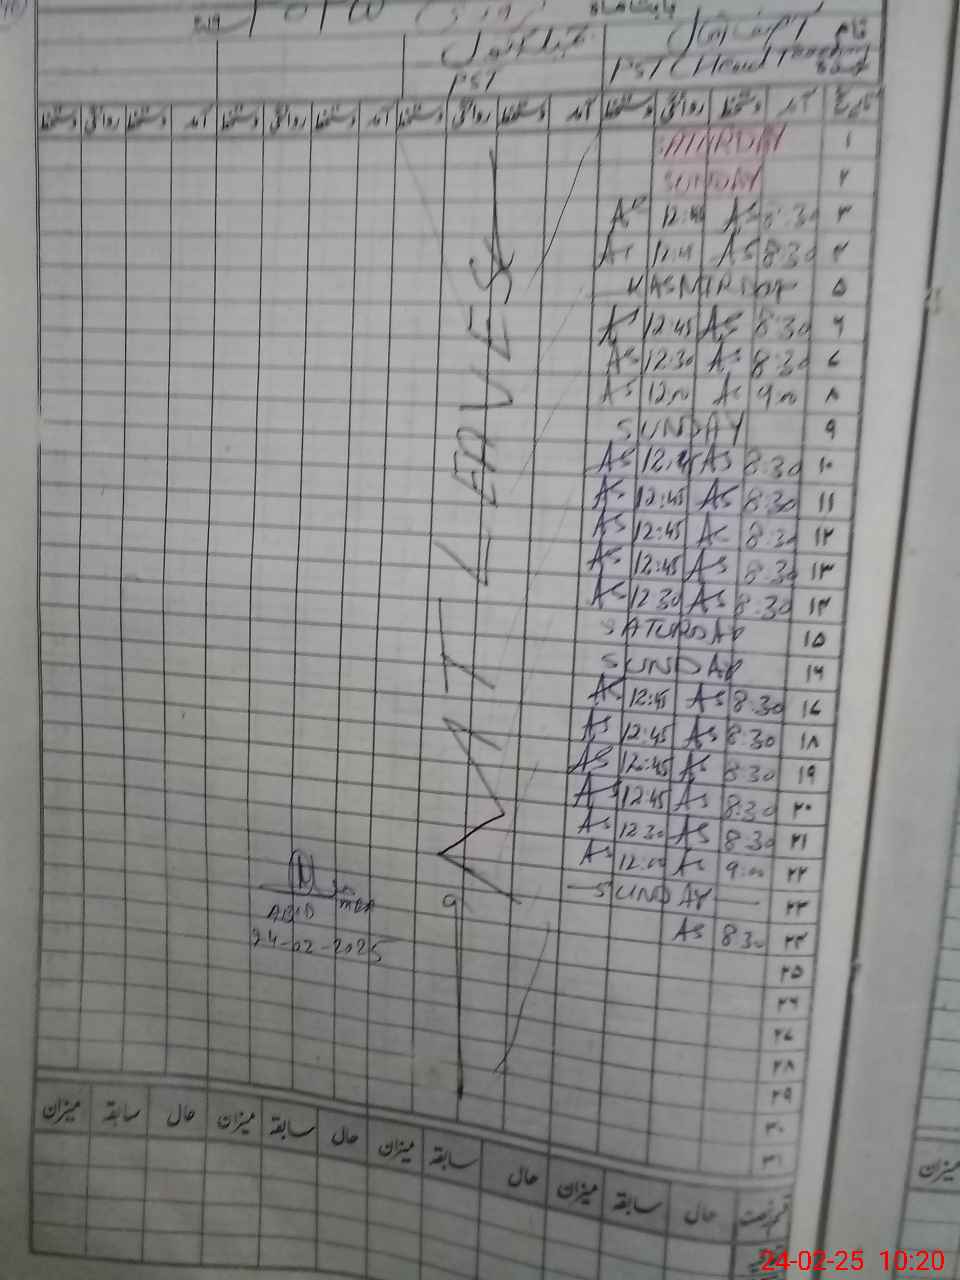 بابت ماہ
نام
عہدہ
PST (Head Teacher)
PST
تاریخ آمد دستخط روانگی دستخط آمد دستخط روانگی دستخط آمد دستخط روانگی دستخط آمد دستخط روانگی دستخط
۱ SATURDAY
۲ SUNDAY
۳ 8:30 AS 12:45 AS
۴ 8:30 AS AS
۵ KASMIR DAY
۶ 8:30 AS 12:45 AS
۷ 8:30 AS 12:30 AS
۸ 9:00 AS 12:00 AS
۹ SUNDAY
۱۰ 8:30 AS 12:45 AS
۱۱ 8:30 AS 12:45 AS
۱۲ 8:30 AS 12:45 AS
۱۳ 8:30 AS 12:45 AS
۱۴ 8:30 AS 12:30 AS
۱۵ SATURDAY
۱۶ SUNDAY
۱۷ 8:30 AS 12:45 AS
۱۸ 8:30 AS 12:45 AS
۱۹ 8:30 AS 12:45 AS
۲۰ 8:30 AS 12:45 AS
۲۱ 8:30 AS 12:30 AS
۲۲ 9:00 AS 12:00 AS
۲۳ SUNDAY
۲۴ 8:30 AS
۲۵
۲۶
۲۷
۲۸
۲۹
۳۰
۳۱
MAT LEAVES
ABID
24-02-2025
قسم رخصت حال سابقہ میزان حال سابقہ میزان حال سابقہ میزان حال سابقہ میزان
میزان
24-02-25 10:20